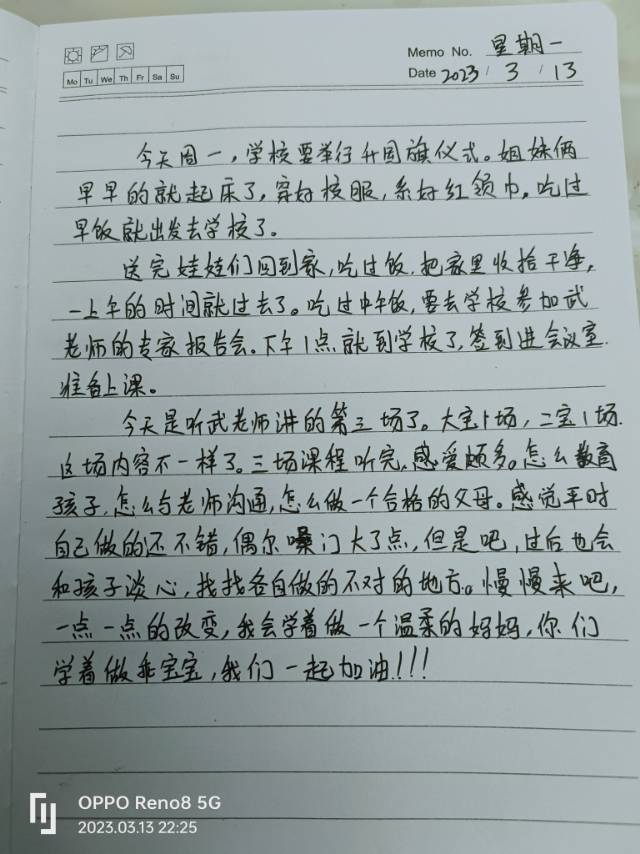 Memo No. 星期一
Mo Tu We Th Fr Sa Su
Date 2023 / 3 / 13
今天周一，学校要举行升国旗仪式。姐妹俩
早早的就起床了，穿好校服，系好红领巾。吃过
早饭就出发去学校了。
送完娃娃们回到家，吃过饭.把家里收拾干净，
一上午的时间就过去了。吃过中午饭，要去学校参加武
老师的专家报告会。下午1点就到学校了，签到进会议室.
准备上课。
今天是听武老师讲的第三场了。大宝1场，二宝1场.
这场内容不一样了。三场课程听完，感受颇多。怎么教育
孩子，怎么与老师沟通，怎么做一个合格的父母。感觉平时
自己做的还不错，偶尔嗓门大了点，但是吧，过后也会
和孩子谈心，找找各自做的不对的地方。慢慢来吧，
一点一点的改变，我会学着做一个温柔的妈妈，你们
学着做乖宝宝，我们一起加油!!!
OPPO Reno8 5G
2023.03.13 22:25